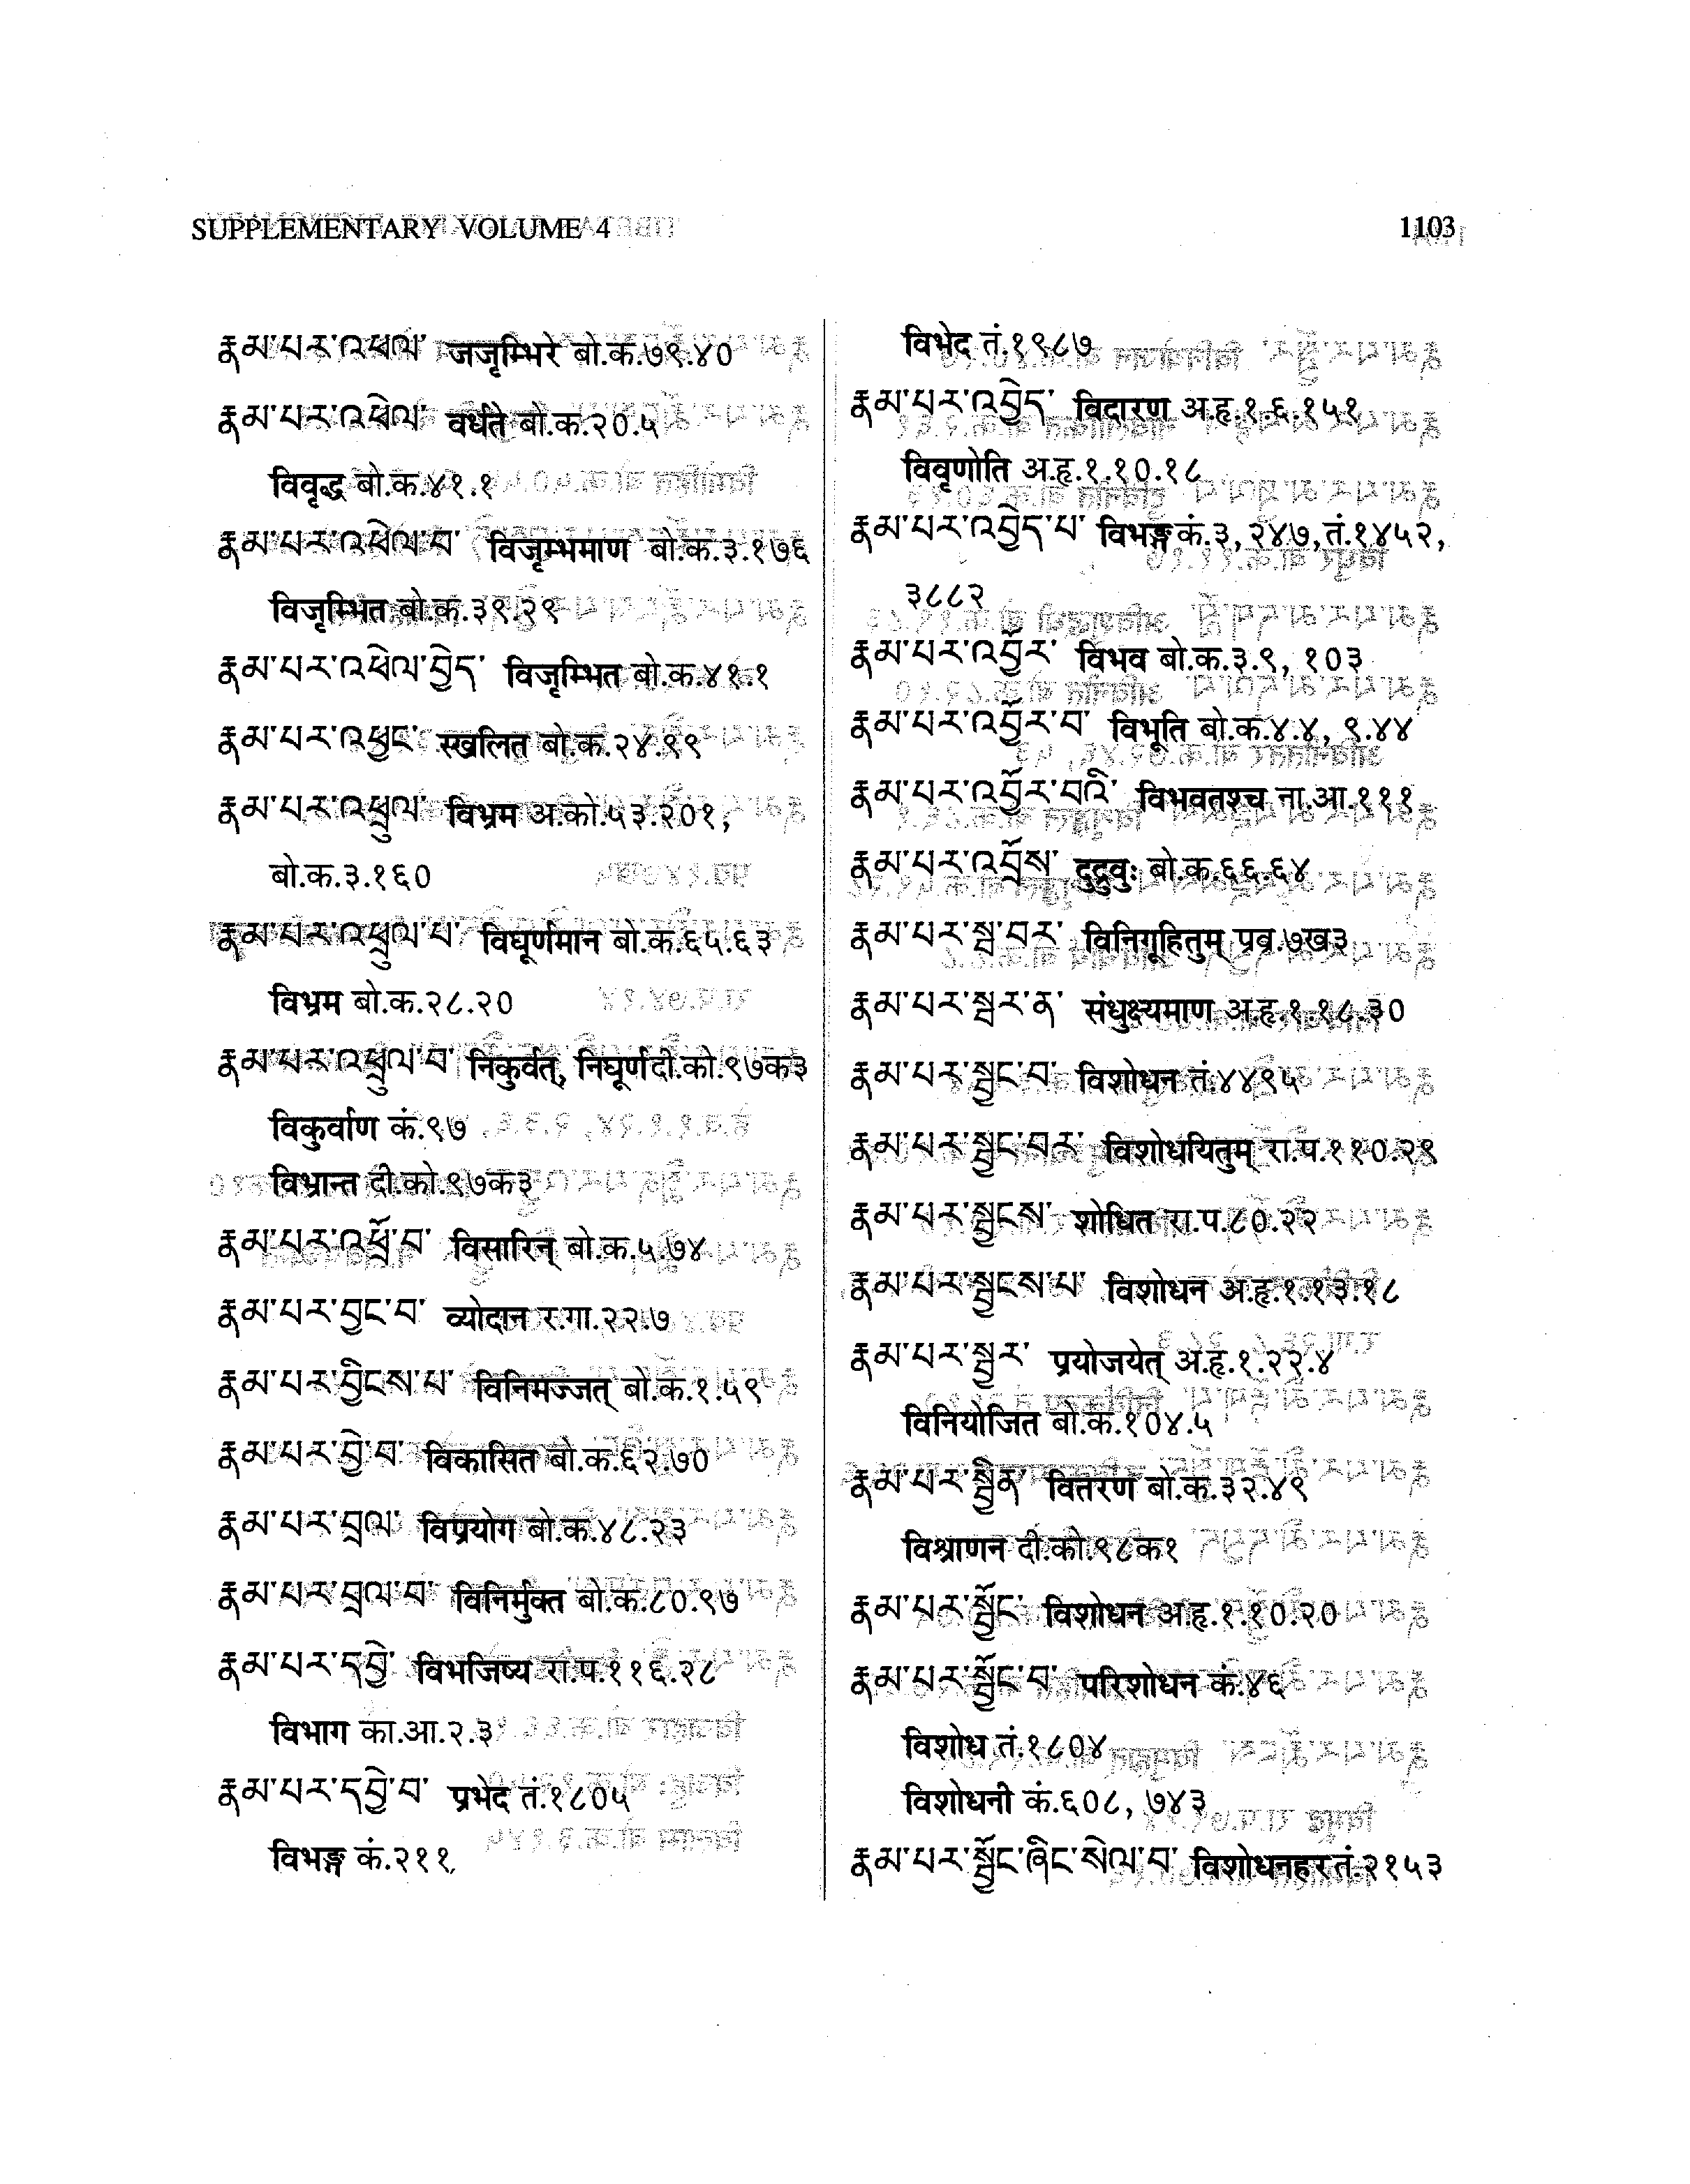 SUPPLEMENTARY VOLUME 4 1103
རྣམ་པར་འཕལ་ जजृम्भिरे बो.क.७९.४०
རྣམ་པར་འཕེལ་ वर्धते बो.क.२०.५
विवृद्ध बो.क.४१.१
རྣམ་པར་འཕེལ་བ་ विजृम्भमाण बो.क.३.१७६
विजृम्भित बो.क.३९.२९
རྣམ་པར་འཕེལ་བྱེད་ विजृम्भित बो.क.४१.१
རྣམ་པར་འཕྱང་ स्खलित बो.क.२४.९९
རྣམ་པར་འཕྲུལ་ विभ्रम अ.को.५३.२०१,
बो.क.३.१६०
རྣམ་པར་འཕྲུལ་པ་ विघूर्णमान बो.क.६५.६३
विभ्रम बो.क.२८.२०
རྣམ་པར་འཕྲུལ་བ་ निकुर्वत्, निघूर्ण दी.को.९७क३
विकुर्वाण कं.९७
विभ्रान्त दी.को.९७क३
རྣམ་པར་འཕྲོ་བ་ विसारिन् बो.क.५.७४
རྣམ་པར་བྱང་བ་ व्योदान र.गा.२२.७
རྣམ་པར་བྱིངས་པ་ विनिमज्जत् बो.क.१.५९
རྣམ་པར་བྱེ་བ་ विकासित बो.क.६२.७०
རྣམ་པར་བྲལ་ विप्रयोग बो.क.४८.२३
རྣམ་པར་བྲལ་བ་ विनिर्मुक्त बो.क.८०.९७
རྣམ་པར་དབྱེ་ विभजिष्य रा.प.११६.२८
विभाग का.आ.२.३
རྣམ་པར་དབྱེ་བ་ प्रभेद तं.१८०५
विभङ्ग कं.२११
विभेद तं.१९८७
རྣམ་པར་འབྱེད་ विदारण अ.हृ.१.६.१५१
विवृणोति अ.हृ.१.१०.१८
རྣམ་པར་འབྱེད་པ་ विभङ्ग कं.३, २४७, तं.१४५२,
३८८२
རྣམ་པར་འབྱོར་ विभव बो.क.३.९, १०३
རྣམ་པར་འབྱོར་བ་ विभूति बो.क.४.४, ९.४४
རྣམ་པར་འབྱོར་བའི་ विभवतश्च ना.आ.१११
རྣམ་པར་འབྲོས་ दुद्रुवुः बो.क.६६.६४
རྣམ་པར་སྦ་བར་ विनिगूहितुम् प्रव्र.७ख३
རྣམ་པར་སྦར་ན་ संधुक्ष्यमाण अ.हृ.१.१८.३०
རྣམ་པར་སྦྱང་བ་ विशोधन तं.४४९५
རྣམ་པར་སྦྱང་བར་ विशोधयितुम् रा.प.११०.२९
རྣམ་པར་སྦྱངས་ शोधित रा.प.८०.२२
རྣམ་པར་སྦྱངས་པ་ विशोधन अ.हृ.१.१३.१८
རྣམ་པར་སྦྱར་ प्रयोजयेत् अ.हृ.१.२२.४
विनियोजित बो.क.१०४.५
རྣམ་པར་སྦྱིན་ वितरण बो.क.३२.४९
विश्राणन दी.को.९८क१
རྣམ་པར་སྦྱོང་ विशोधन अ.हृ.१.१०.२०
རྣམ་པར་སྦྱོང་བ་ परिशोधन कं.४६
विशोध तं.१८०४
विशोधनी कं.६०८, ७४३
རྣམ་པར་སྦྱོང་ཞིང་སེལ་བ་ विशोधनहर तं.२१५३